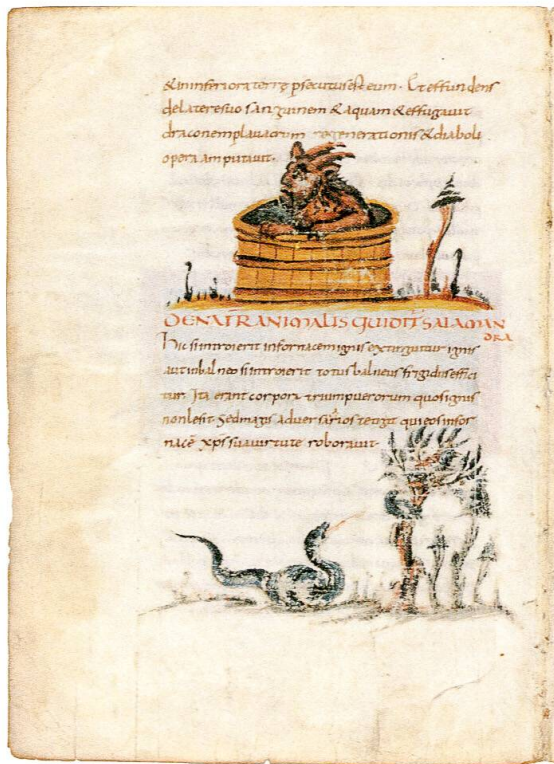 &ininferiora terrę psecutus est eum· Et effundens
de latere suo sanguinem & aquam & effugavit
draconem p lavacrum regenerationis & diaboli
opera amputavit·
DE NATR ANIMALIS QUI DT SALAMAN
DRA
Hic si introierit in fornacem ignis extinguitur ignis
aut in balneo si introierit totus balneus frigidus effici
tur Ita erant corpora trium puerorum quos ignis
non lesit Sed magis adversarios tetigit qui eos in for
nacē xps sua virtute roboravit·